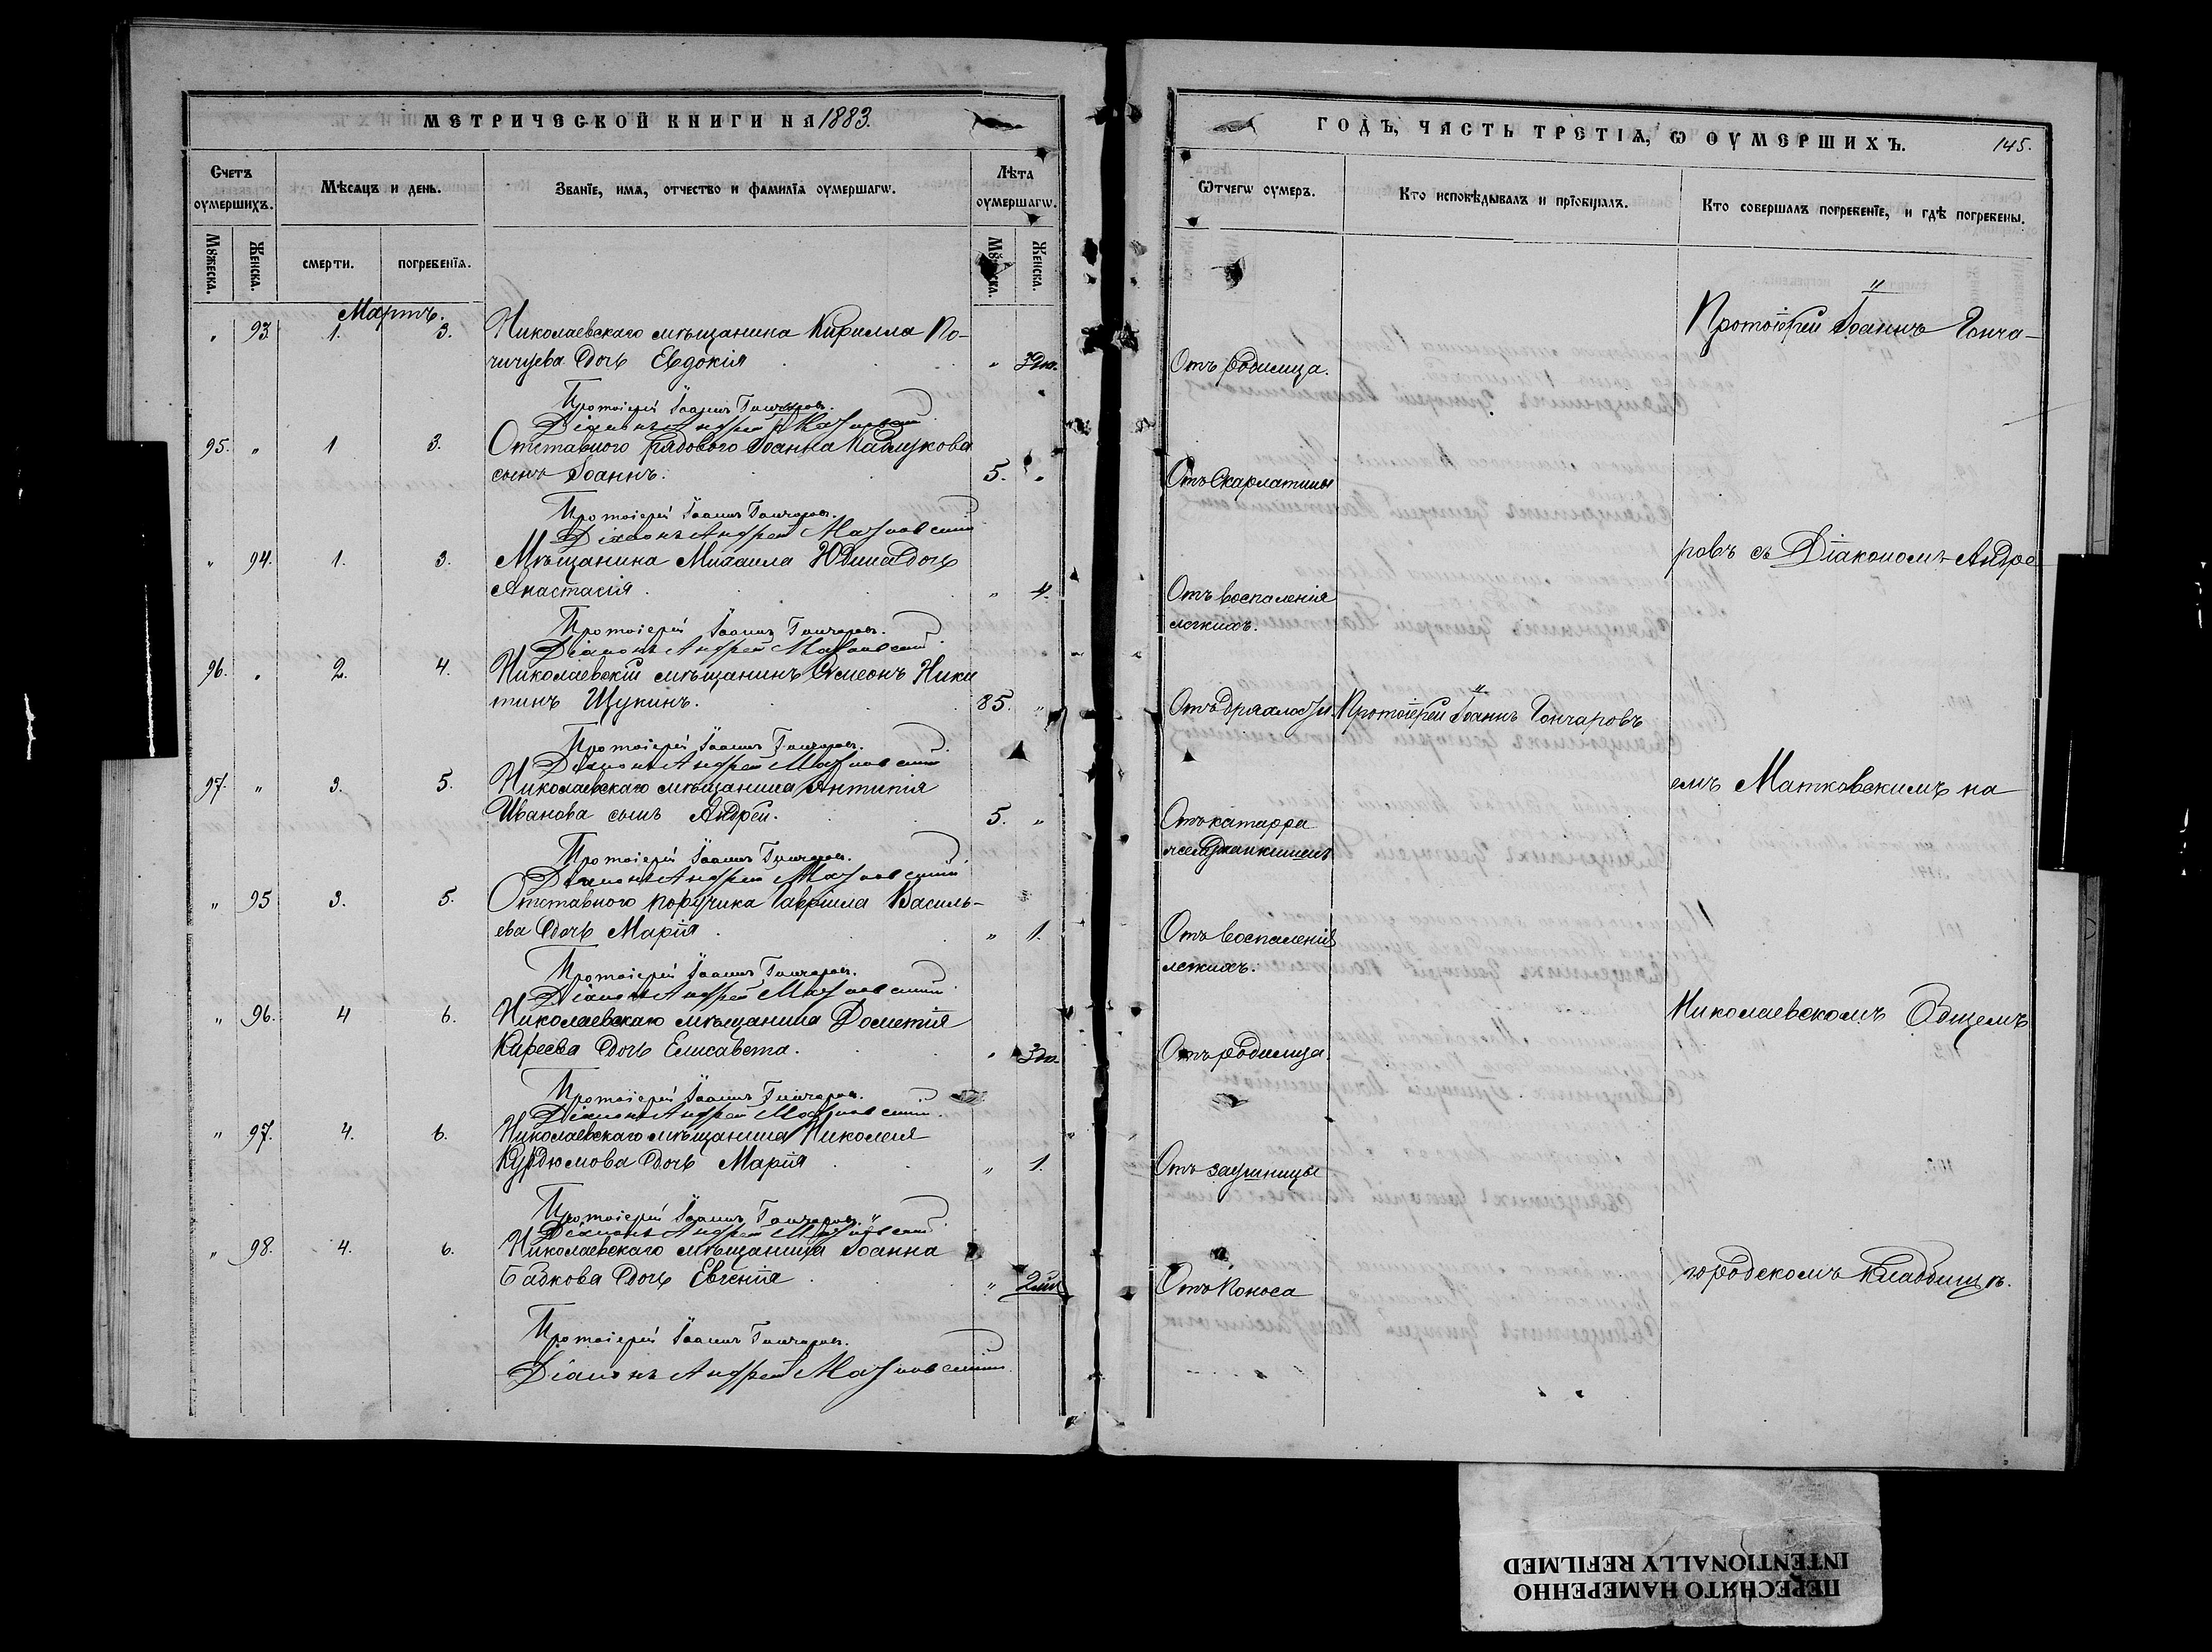 МЕТРИЧЕСКОЙ КНИГИ НА 1883.
Счетъ оумершихъ.
Мѣсяцъ и день.
Званіе, имя, отчество и фамилія оумершагѡ.
Лѣта оумершагѡ.
Мꙋжеска.
Женска.
смерти.
погребенія.
Мꙋжеска.
Женска.
Мартъ.
" 93 1. 3. Николаевскаго мѣщанина Кирилла По-
дочь Евдокія " 3 дн.
Протоіерей Іоаннъ Гончаровъ.
Діаконъ Андрей
95. " 1 3. Отставного рядового Іоанна
сынъ Іоаннъ. 5. "
Протоіерей Іоаннъ Гончаровъ.
Діаконъ Андрей Матковскій
" 94. 1. 3. Мѣщанина Михаила Юдина дочь
Анастасія " 4.
Протоіерей Іоаннъ Гончаровъ.
Діаконъ Андрей Матковскій
96. " 2. 4. Николаевскій мѣщанинъ Симеонъ Ники
тинъ Щукинъ. 85. "
Протоіерей Іоаннъ Гончаровъ.
Діаконъ Андрей Матковскій
97. " 3. 5. Николаевскаго мѣщанина Антипія
Иванова сынъ Андрей. 5. "
Протоіерей Іоаннъ Гончаровъ.
Діаконъ Андрей Матковскій
" 95 3. 5. Отставного поручика Гавріила Василь-
ева дочь Марія " 1.
Протоіерей Іоаннъ Гончаровъ.
Діаконъ Андрей Матковскій
" 96. 4 6. Николаевскаго мѣщанина Дометія
Киреева дочь Елисавета. " 3 дн.
Протоіерей Іоаннъ Гончаровъ.
Діаконъ Андрей Матковскій
" 97. 4. 6. Николаевскаго мѣщанина Николая
Курдюмова дочь Марія " 1.
Протоіерей Іоаннъ Гончаровъ.
Діаконъ Андрей Матковскій
" 98. 4. 6. Николаевскаго мѣщанина Іоанна
Бабкова дочь Евгенія "
Протоіерей Іоаннъ Гончаровъ.
Діаконъ Андрей Матковскій
ГОДЪ, ЧАСТЬ ТРЕТІЯ, Ѡ ОУМЕРШИХЪ. 145.
Ѿтчегѡ оумеръ.
Кто исповѣдывалъ и пріобщалъ.
Кто совершалъ погребеніе, и гдѣ погребены.
Протоіерей Іоаннъ Гонча-
Отъ родимца.
Отъ скарлатины
ровъ съ Діакономъ Андре
Отъ воспаленія
легкихъ.
Отъ дряхлости. Протоіерей Іоаннъ Гончаровъ
емъ Матковскимъ на
Отъ катарра
Отъ воспаленія
легкихъ.
Николаевскомъ Общемъ
Отъ родимца.
Отъ заушницы
городскомъ кладбищѣ.
Отъ поноса
ПЕРЕСНЯТО НАМЕРЕННО
INTENTIONALLY REFILMED